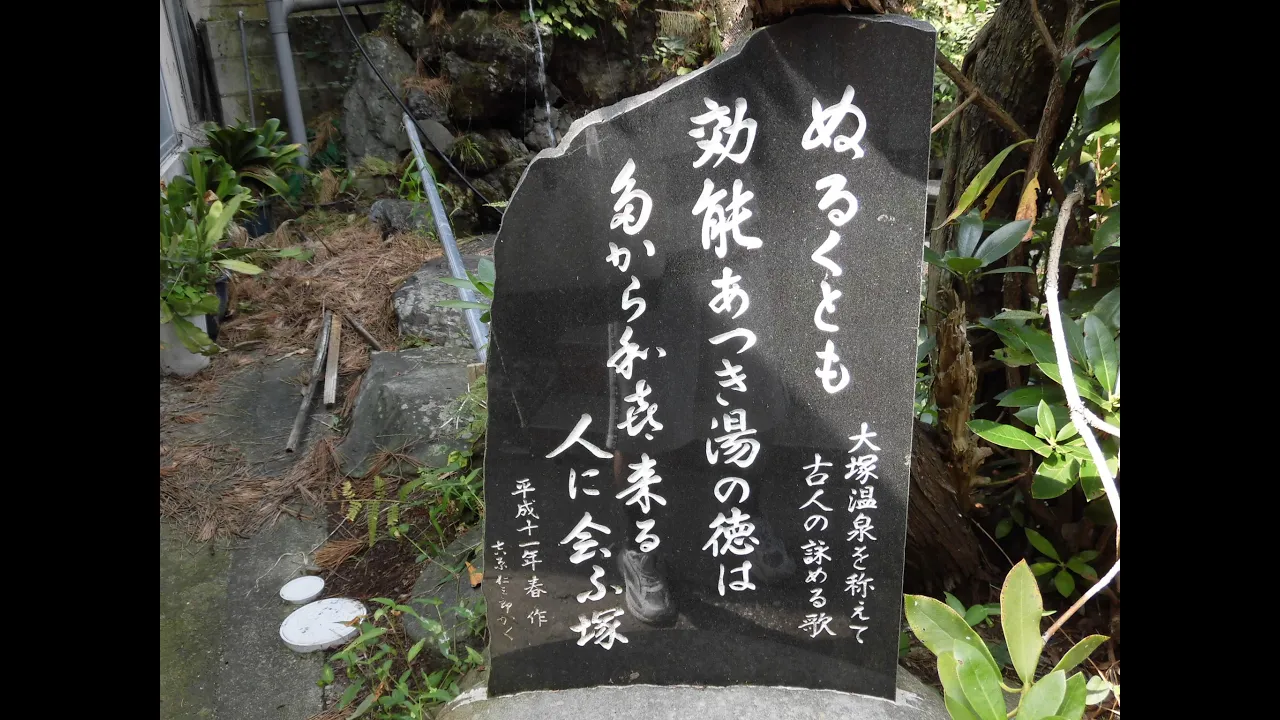 大塚温泉を称えて
古人の詠める歌
ぬるくとも
効能あつき湯の徳は
多から和喜来る
人に会ふ塚
平成十一年春作